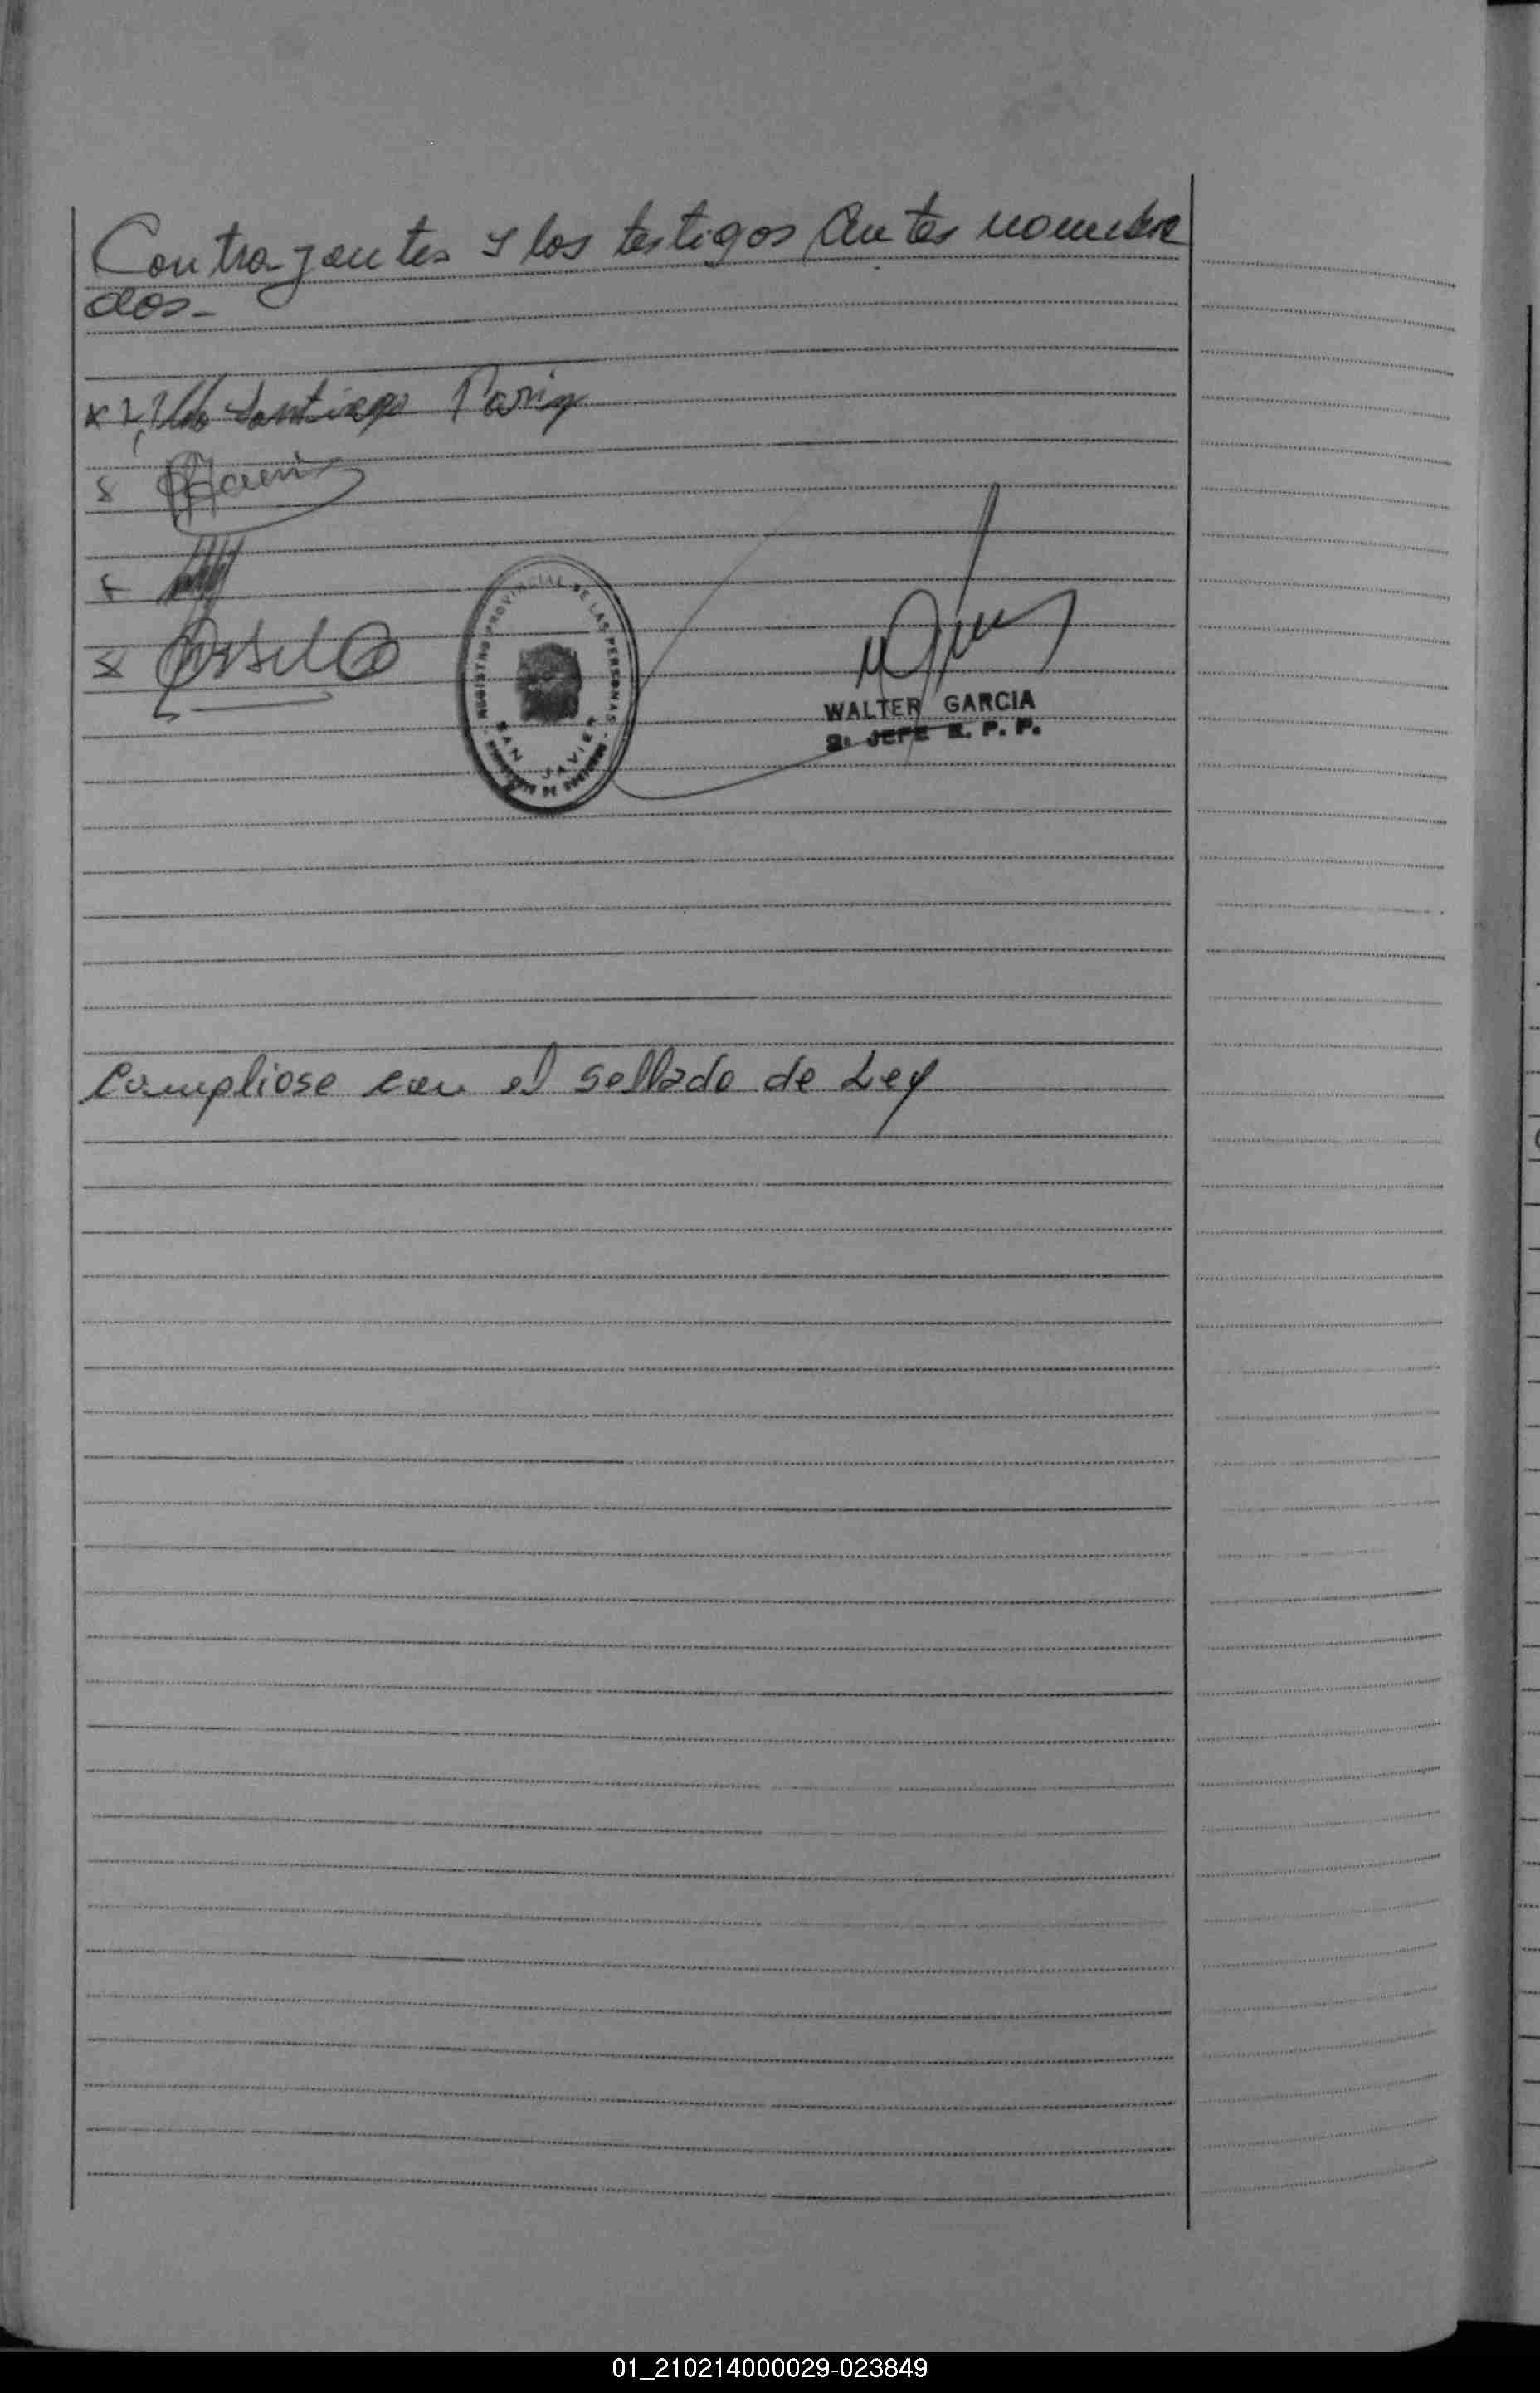 Contrayentes y los testigos Antes nombra
dos-
x Santiago
x
x
x
REGISTRO PROVINCIAL DE LAS PERSONAS
SAN JAVIER
WALTER GARCIA
JEFE R. P. P.
Cumpliose con el sellado de Ley
01_210214000029-023849